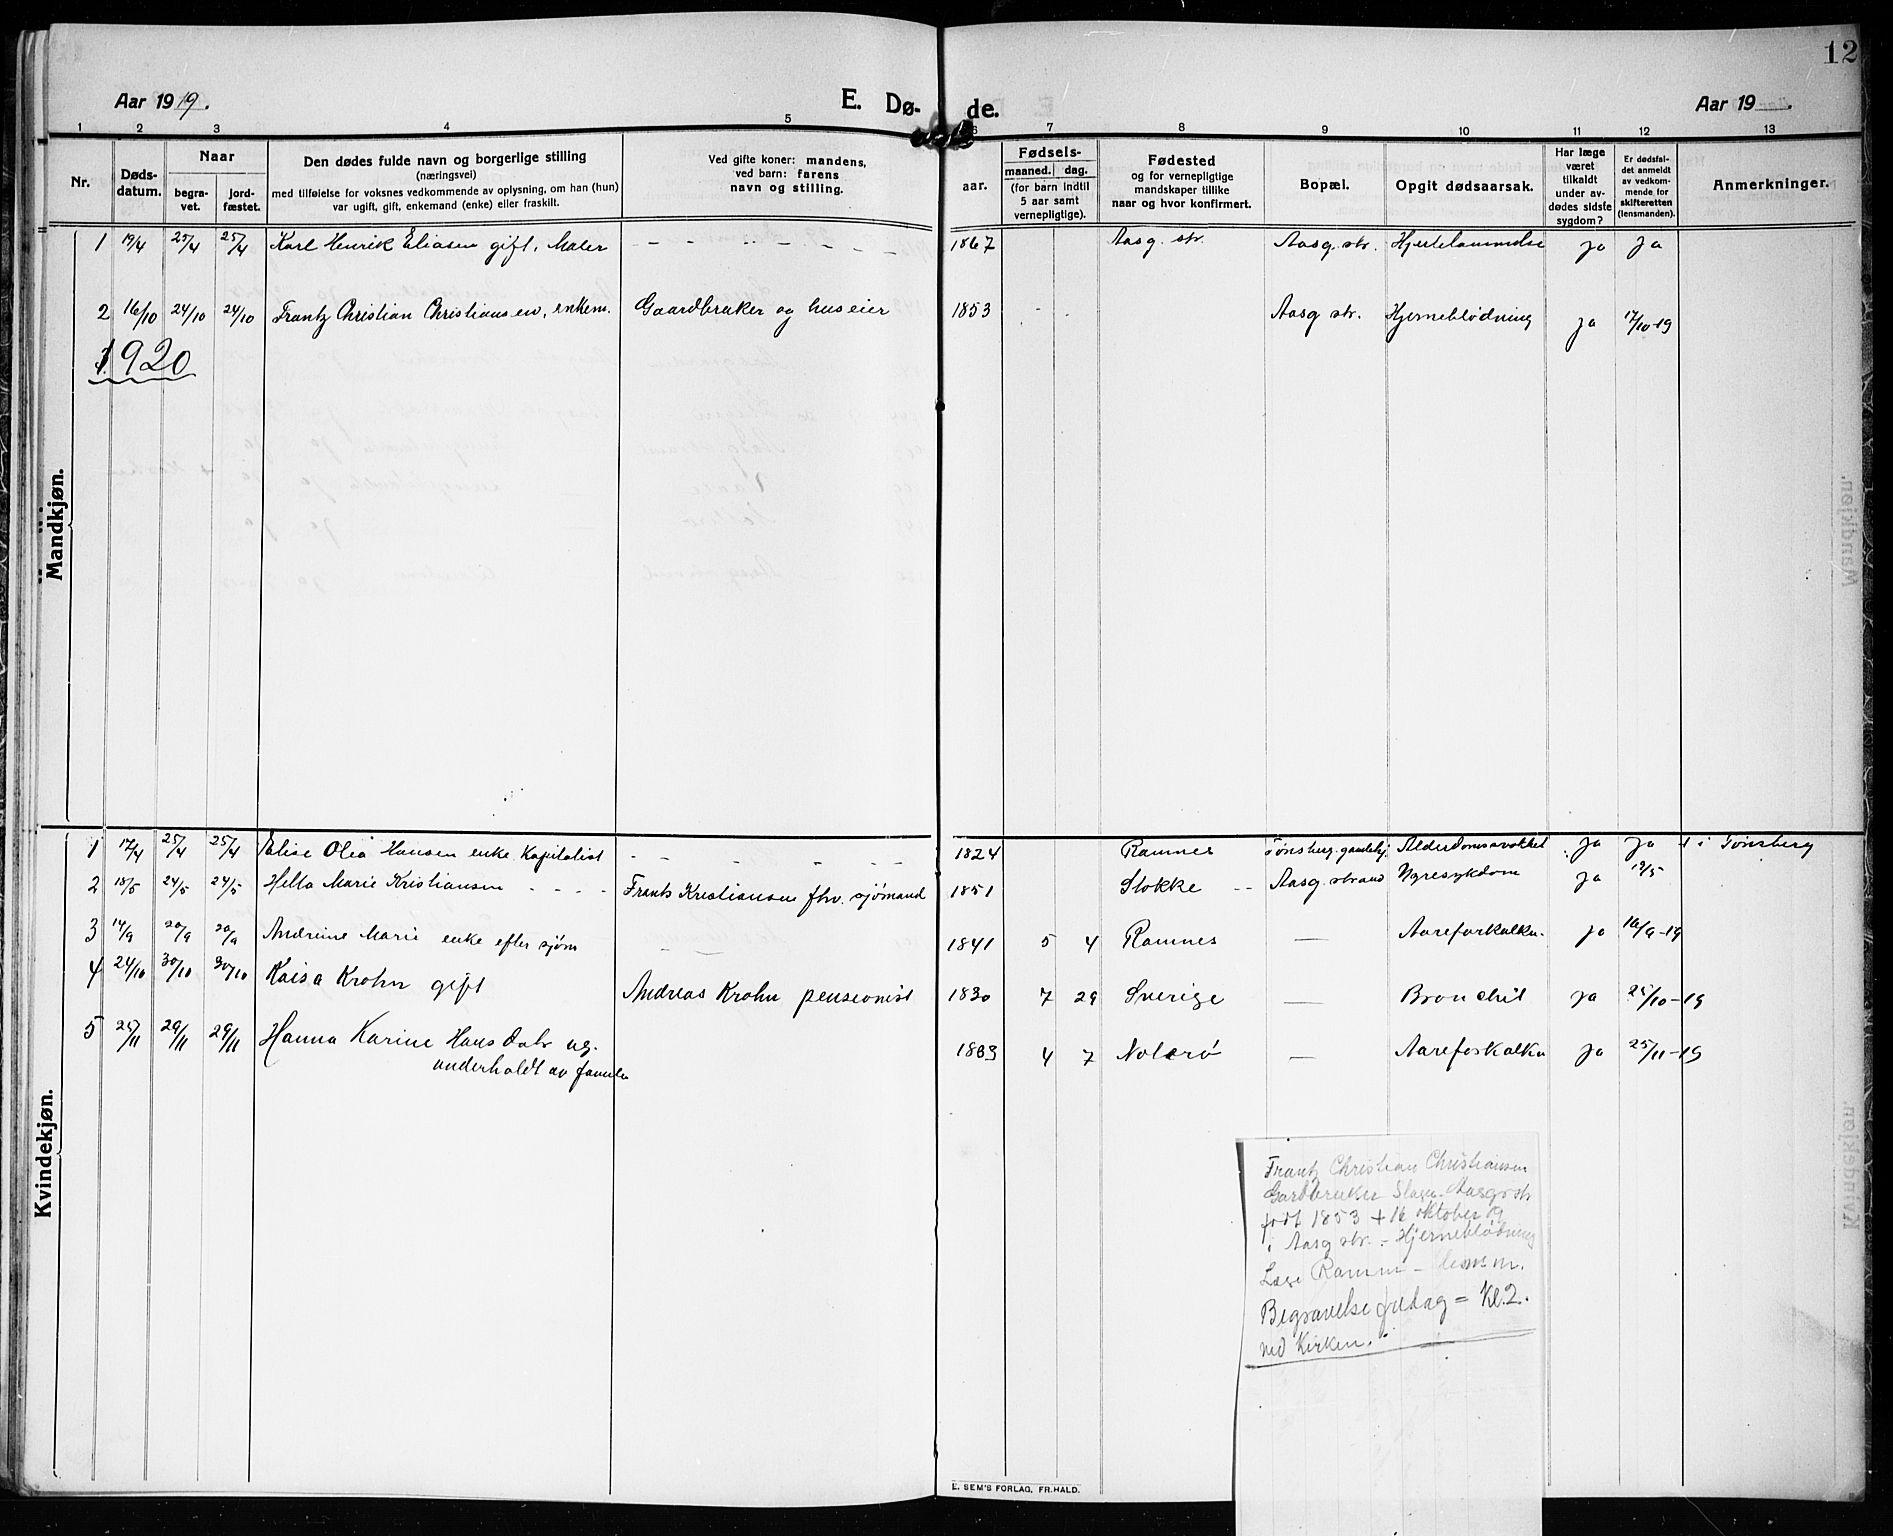 12
Aar 1919. E. Dø- de. Aar 19
1 2 3 4 5 6 7 8 9 10 11 12 13
Nr. Døds-datum. Naar begra-vet. jord-fæstet. Den dødes fulde navn og borgerlige stilling (næringsvei) med tilføielse for voksnes vedkommende av oplysning, om han (hun) var ugift, gift, enkemand (enke) eller fraskilt. Ved gifte koner: mandens, ved barn: farens navn og stilling. aar. Fødsels- maaned. dag. (for barn indtil 5 aar samt vernepligtige). Fødested og for vernepligtige mandskaper tillike naar og hvor konfirmert. Bopæl. Opgit dødsaarsak. Har læge været tilkaldt under av-dødes sidste sygdom? Er dødsfal-det anmeldt av vedkom-mende for skifteretten (lensmanden). Anmerkninger.
Mandkjøn.
1 19/4 25/4 25/4 Karl Henrik Eliasen gift, Maler - - - - - - 1867 Aasg. str. Aasg. str. Hjertelammelse ja ja
2 16/10 24/10 24/10 Frantz Christian Christiansen, enkem. Gaardbruker og huseier 1853 - - Aasg str. Hjerneblødning ja 17/10-19
1920
Kvindekjøn.
1 17/4 25/4 25/4 Elise Olea Hansen enke Kapitalist - - - - - 1824 Ramnes Tønsberg. gamlehj. ja ja † i Tønsberg
2 18/5 24/5 24/5 Marie Kristiansen - - - - Frants Kristiansen fhv. sjømand 1851 Stokke - - Aasg. strand Nyresykdom ja 19/5
3 14/9 20/9 20/9 Andrine Marie enke efter sjøm - - 1841 5 4 Ramnes — Aareforkalkn. ja 16/9-19
4 24/10 30/10 30/10 Kaisa Krohn gift Andreas Krohn pensionist 1830 7 29 Sverige — Bronchit ja 25/10-19
5 25/11 29/11 29/11 Hanna Karine ug. 4 7 Nøterø — Aareforkalkn ja 25/11-19
underholdt av familie
Frantz Christian Christiansen
Gardbruker Slagen Aasgstr
født 1853 + 16 oktober 19
i Aasg str. - Hjerneblødning
Læge Ramm -
Begravelse fredag = Kl. 2.
ved Kirken.
E. SEM'S FORLAG, FR.HALD.